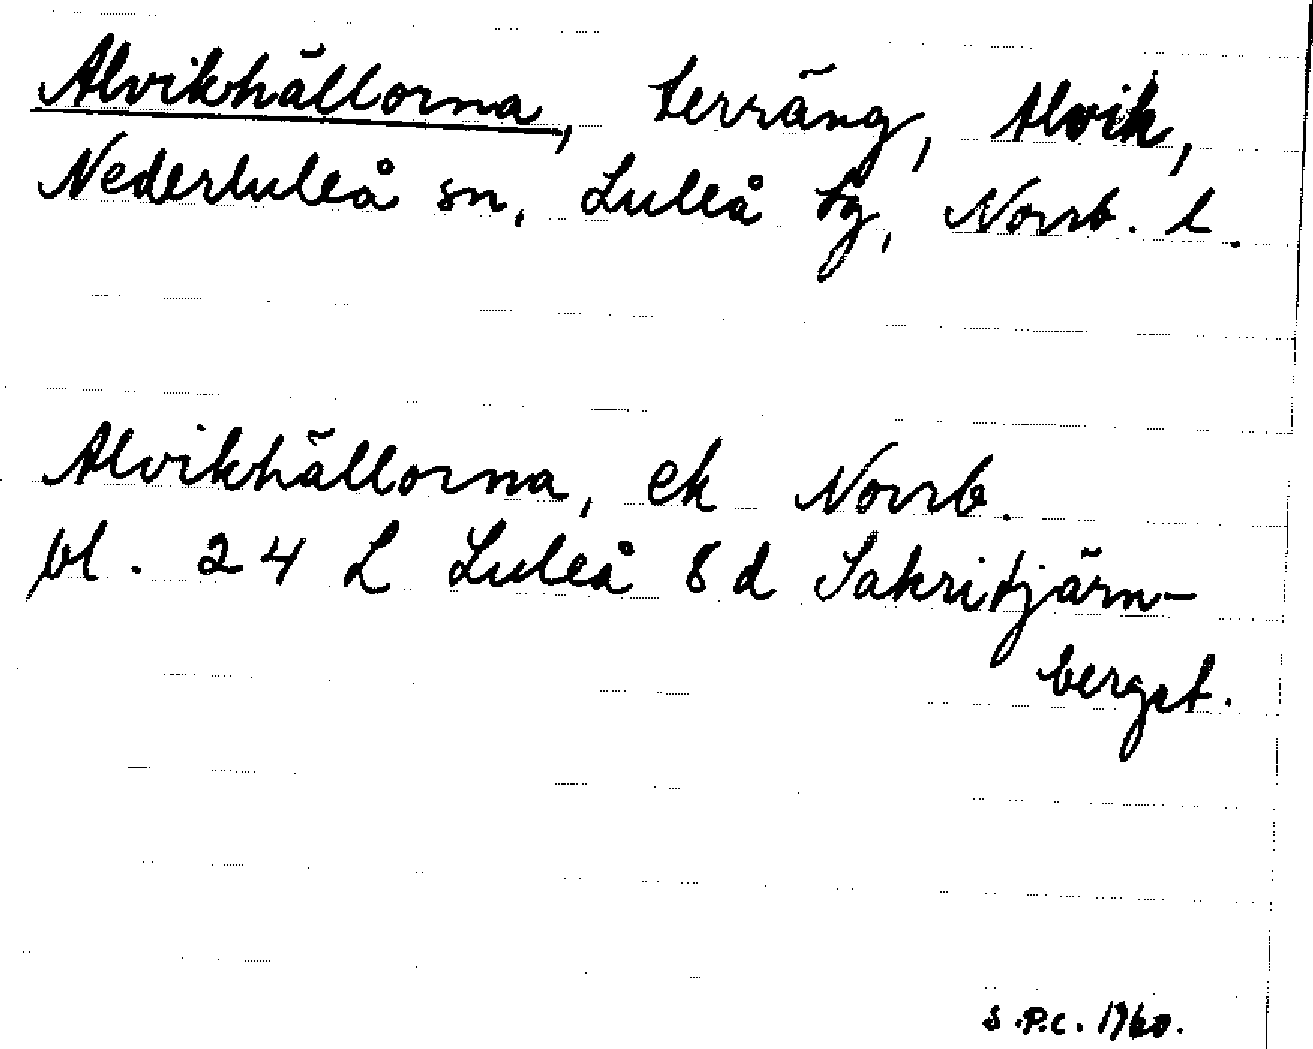 Alvikhällorna, terräng, Alvik,
Nederluleå sn, Luleå tg, Norrb. l.
Alvikhällorna, ek Norrb.
bl. 24 L Luleå 8d Sakritjärn-
bergst.
S.P.C. 1960.